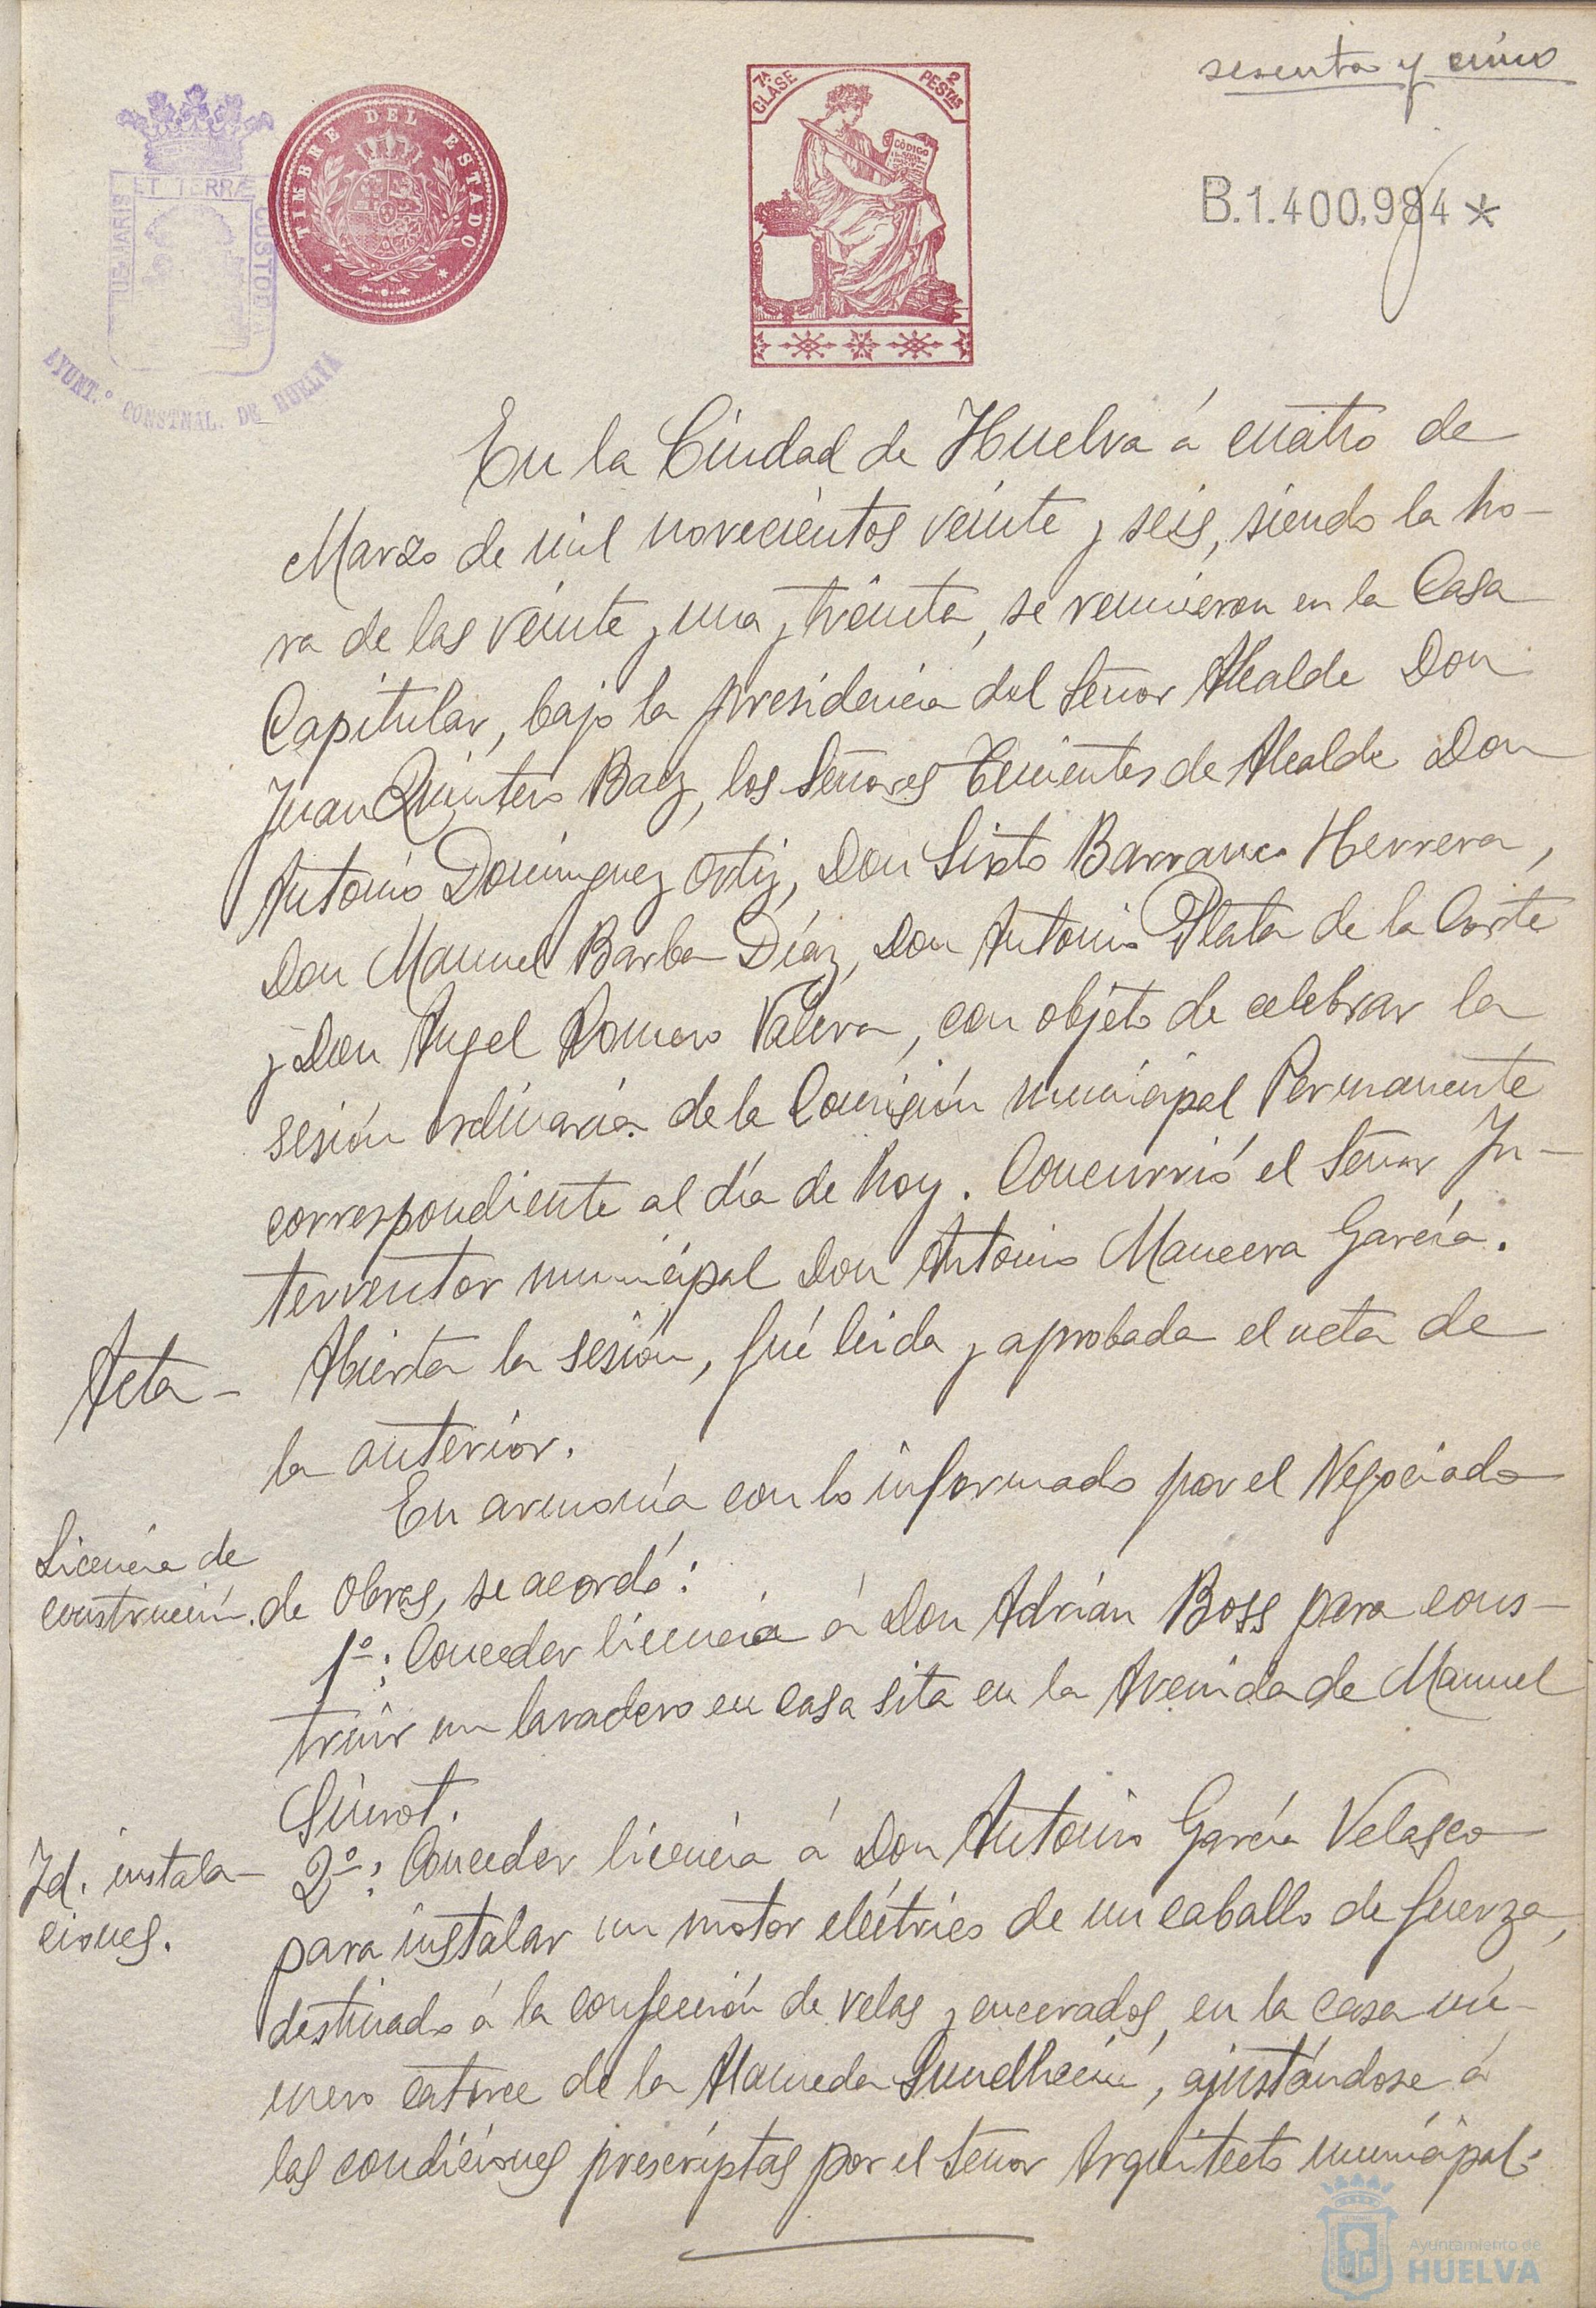 sesenta y cinco
7ª CLASE
2 PESTAS
CÓDIGO
TIMBRE DEL ESTADO
PORTUS MARIS ET TERRÆ CUSTODIA
AYUNT.º CONSTNAL. DE HUELVA
B.1.400.984*
En la Ciudad de Huelva á cuatro de
Marzo de mil novecientos veinte y seis, siendo la ho-
ra de las veinte y una y treinta, se reunieron en la Casa
Capitular, bajo la presidencia del Señor Alcalde Don
Juan Quintero Baez, los Señores Tenientes de Alcalde Don
Antonio Dominguez Ortiz, Don Sixto Barranco Herrera,
Don Manuel Barba Díaz, Don Antonio Plata de la Corte
y Don Angel Romero Valera, con objeto de celebrar la
sesión ordinaria de la Comisión municipal Permanente
correspondiente al día de hoy. Concurrió el Señor In-
terventor municipal Don Antonio Mancera García.
Acta - Abierta la sesión, fué leida y aprobada el acta de
la anterior.
En armonía con lo informado por el Negociado
Licencia de
construcción. de Obras, se acordó:
1º: Conceder licencia á Don Adrián Boss para cons-
truir un lavadero en casa sita en la Avenida de Manuel
Siurot.
Id. instala- 2º: Conceder licencia á Don Antonio García Velasco
ciones. para instalar un motor eléctrico de un caballo de fuerza,
destinado á la confección de velas y encerados, en la casa nú-
mero catorce de la Alameda Sundheim, ajustándose á
las condiciones prescriptas por el Señor Arquitecto municipal.
Ayuntamiento de
HUELVA